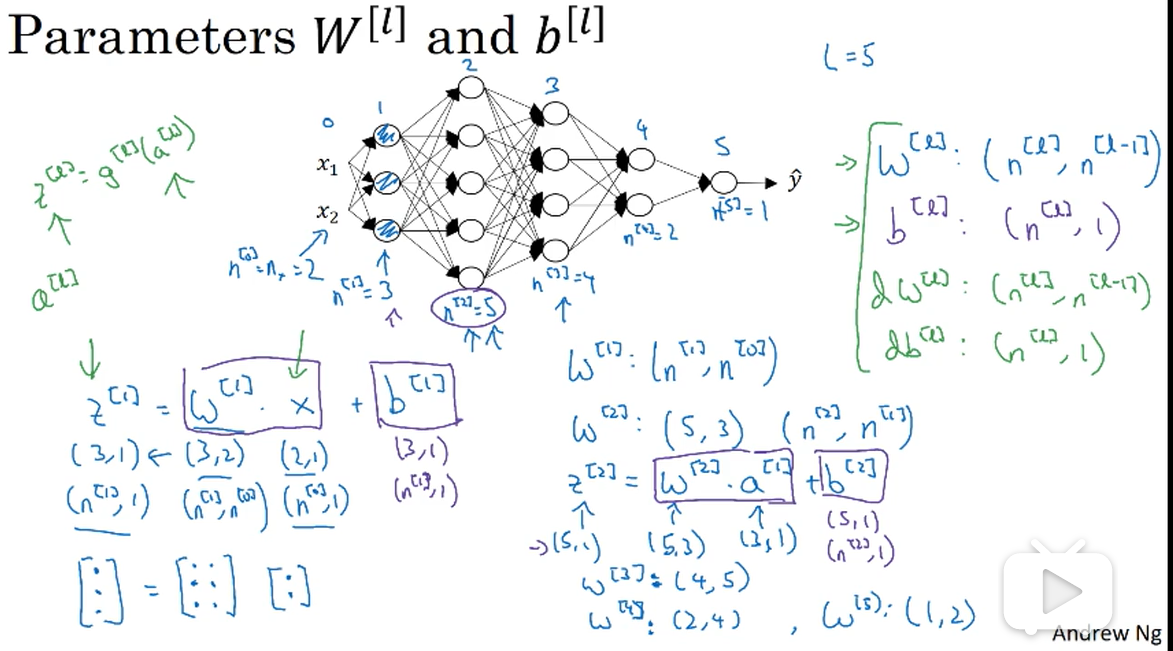 Parameters W^[l] and b^[l]
L = 5
0 1 2 3 4 5
x₁
x₂
ŷ
z^[l] = g^[l](a^[l])
a^[l]
n^[0] = nₓ = 2
n^[1] = 3
n^[2] = 5
n^[3] = 4
n^[4] = 2
n^[5] = 1
→ W^[l] : (n^[l], n^[l-1])
→ b^[l] : (n^[l], 1)
dW^[l] : (n^[l], n^[l-1])
db^[l] : (n^[l], 1)
z^[1] = W^[1] · x + b^[1]
(3,1) ← (3,2) (2,1) (3,1)
(n^[1], 1) (n^[1], n^[0]) (n^[0], 1) (n^[1], 1)
[⋮] = [: :] [:]
W^[1] : (n^[1], n^[0])
W^[2] : (5, 3) (n^[2], n^[1])
z^[2] = W^[2] · a^[1] + b^[2]
→ (5,1) (5,3) (3,1) (5,1)
(n^[2], 1)
W^[3] : (4, 5)
W^[4] : (2,4) , W^[5] : (1,2)
Andrew Ng